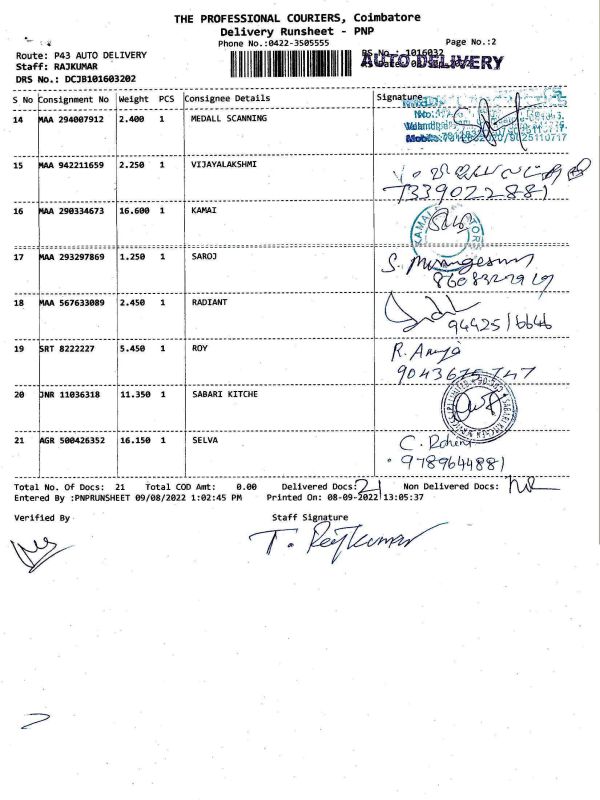 THE PROFESSIONAL COURIERS, Coimbatore
Delivery Runsheet - PNP
Phone No.:0422-3505555
Page No.:2
Route: P43 AUTO DELIVERY
Staff: RAJKUMAR
DRS No.: DCJB101603202
RS No.: 1016032
AUTO DELIVERY
S No Consignment No Weight PCS Consignee Details Signature
14 MAA 294007912 2.400 1 MEDALL SCANNING
15 MAA 942211659 2.250 1 VIJAYALAKSHMI
7339022881
16 MAA 290334673 16.600 1 KAMAI
17 MAA 293297869 1.250 1 SAROJ
18 MAA 567633089 2.450 1 RADIANT
19 SRT 8222227 5.450 1 ROY
20 JNR 11036318 11.350 1 SABARI KITCHE
21 AGR 500426352 16.150 1 SELVA
9789644881
Total No. Of Docs: 21 Total COD Amt: 0.00 Delivered Docs: 21 Non Delivered Docs:
Entered By :PNPRUNSHEET 09/08/2022 1:02:45 PM Printed On: 08-09-2022 13:05:37
Verified By Staff Signature
T. Rajkumar